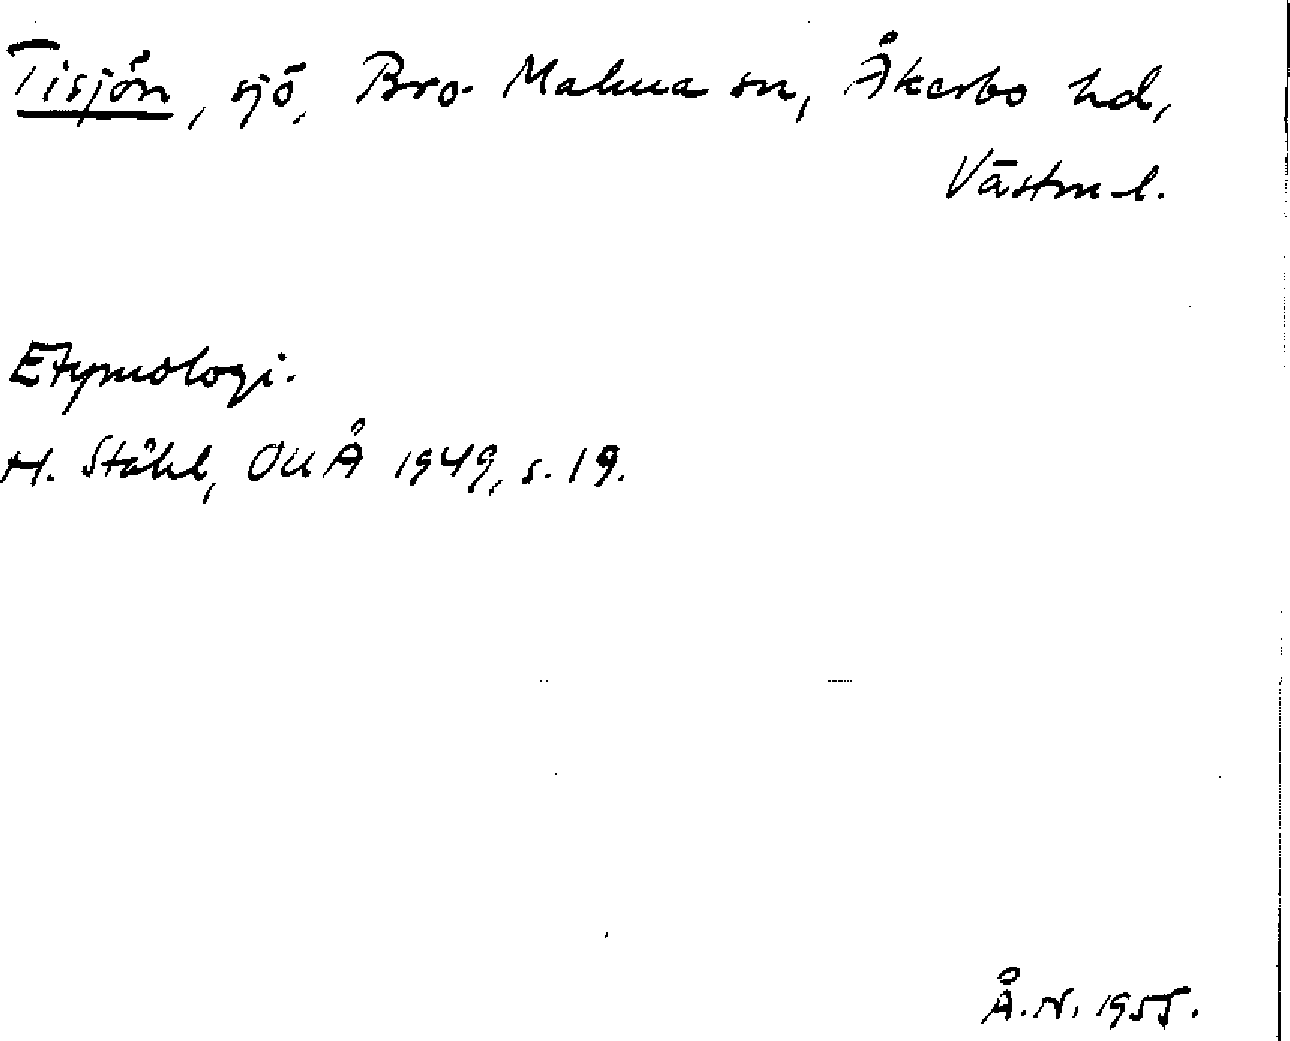 Tisjön, sjö, Bro-Malma sn, Åkerbo hd,
Västm. l.
Etymologi.
H. Ståhl, OUÅ 1949, s. 19.
Å. N. 1955.